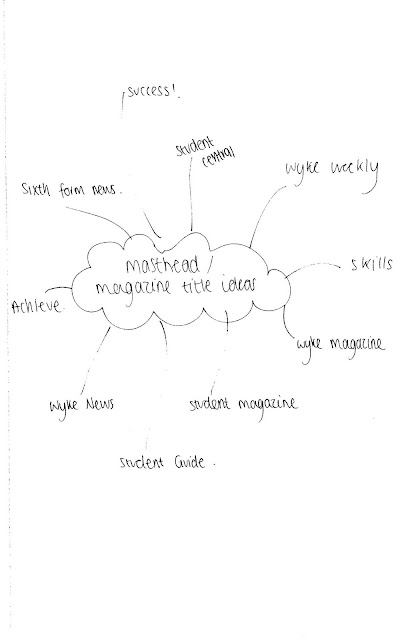 success!
student
central
wyke weekly
Sixth form news.
skills
masthead /
magazine title ideas
Achieve.
wyke magazine
wyke News
student magazine
student Guide.